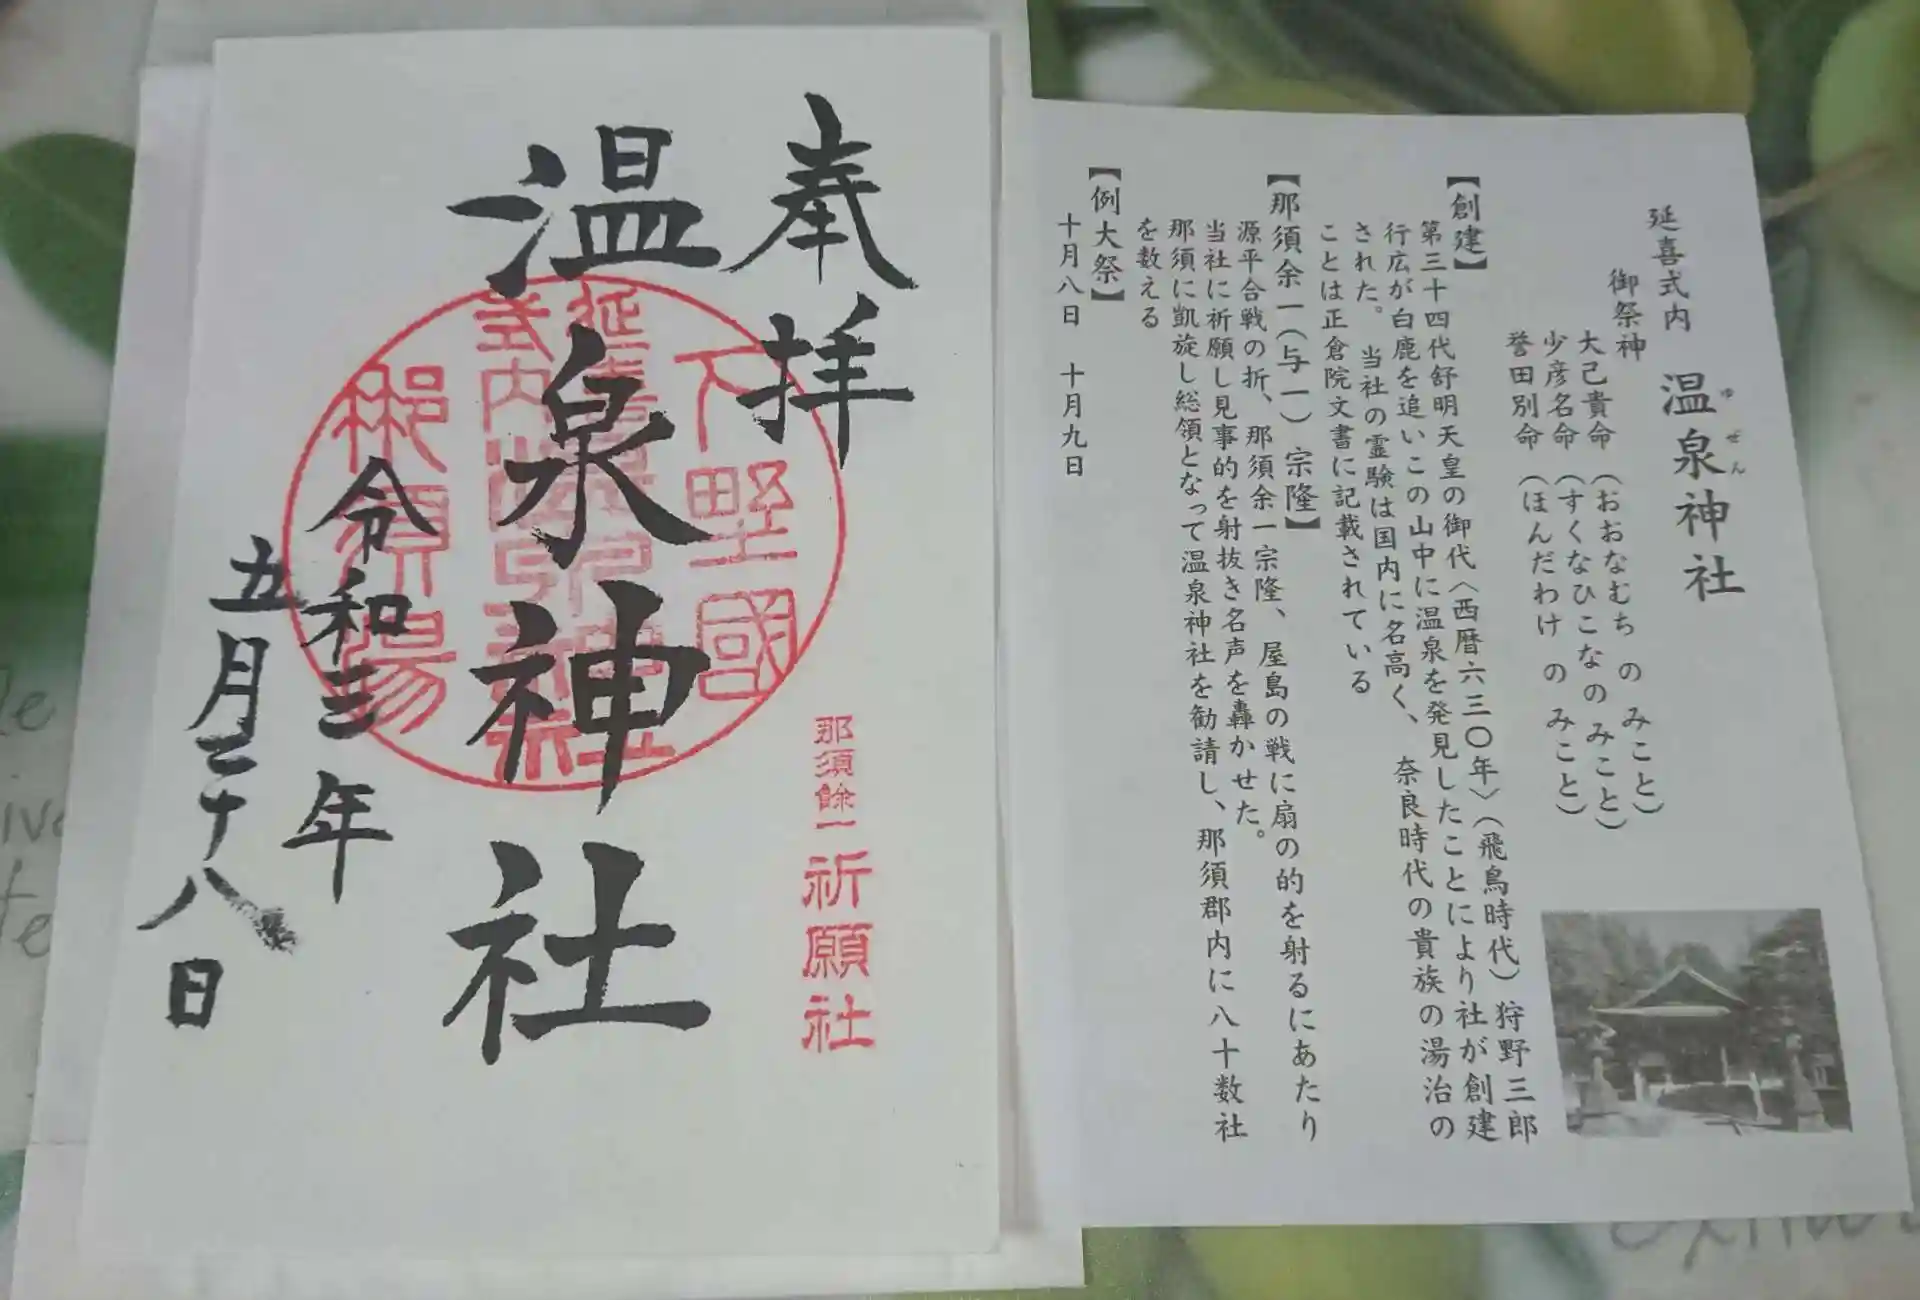 奉拝
温泉神社
令和三年
五月二十八日
下野國
延喜
式内
那須湯
那須餘一
祈願社
延喜式内 温泉神社
ゆぜん
御祭神
大己貴命(おおなむち のみこと)
少彦名命(すくなひこなのみこと)
誉田別命(ほんだわけ のみこと)
【創建】
第三十四代舒明天皇の御代〈西暦六三〇年〉(飛鳥時代)狩野三郎
行広が白鹿を追いこの山中に温泉を発見したことにより社が創建
された。 当社の霊験は国内に名高く、奈良時代の貴族の湯治の
ことは正倉院文書に記載されている
【那須余一(与一)宗隆】
源平合戦の折、那須余一宗隆、屋島の戦に扇の的を射るにあたり
当社に祈願し見事的を射抜き名声を轟かせた。
那須に凱旋し総領となって温泉神社を勧請し、那須郡内に八十数社
を数える
【例大祭】
十月八日 十月九日